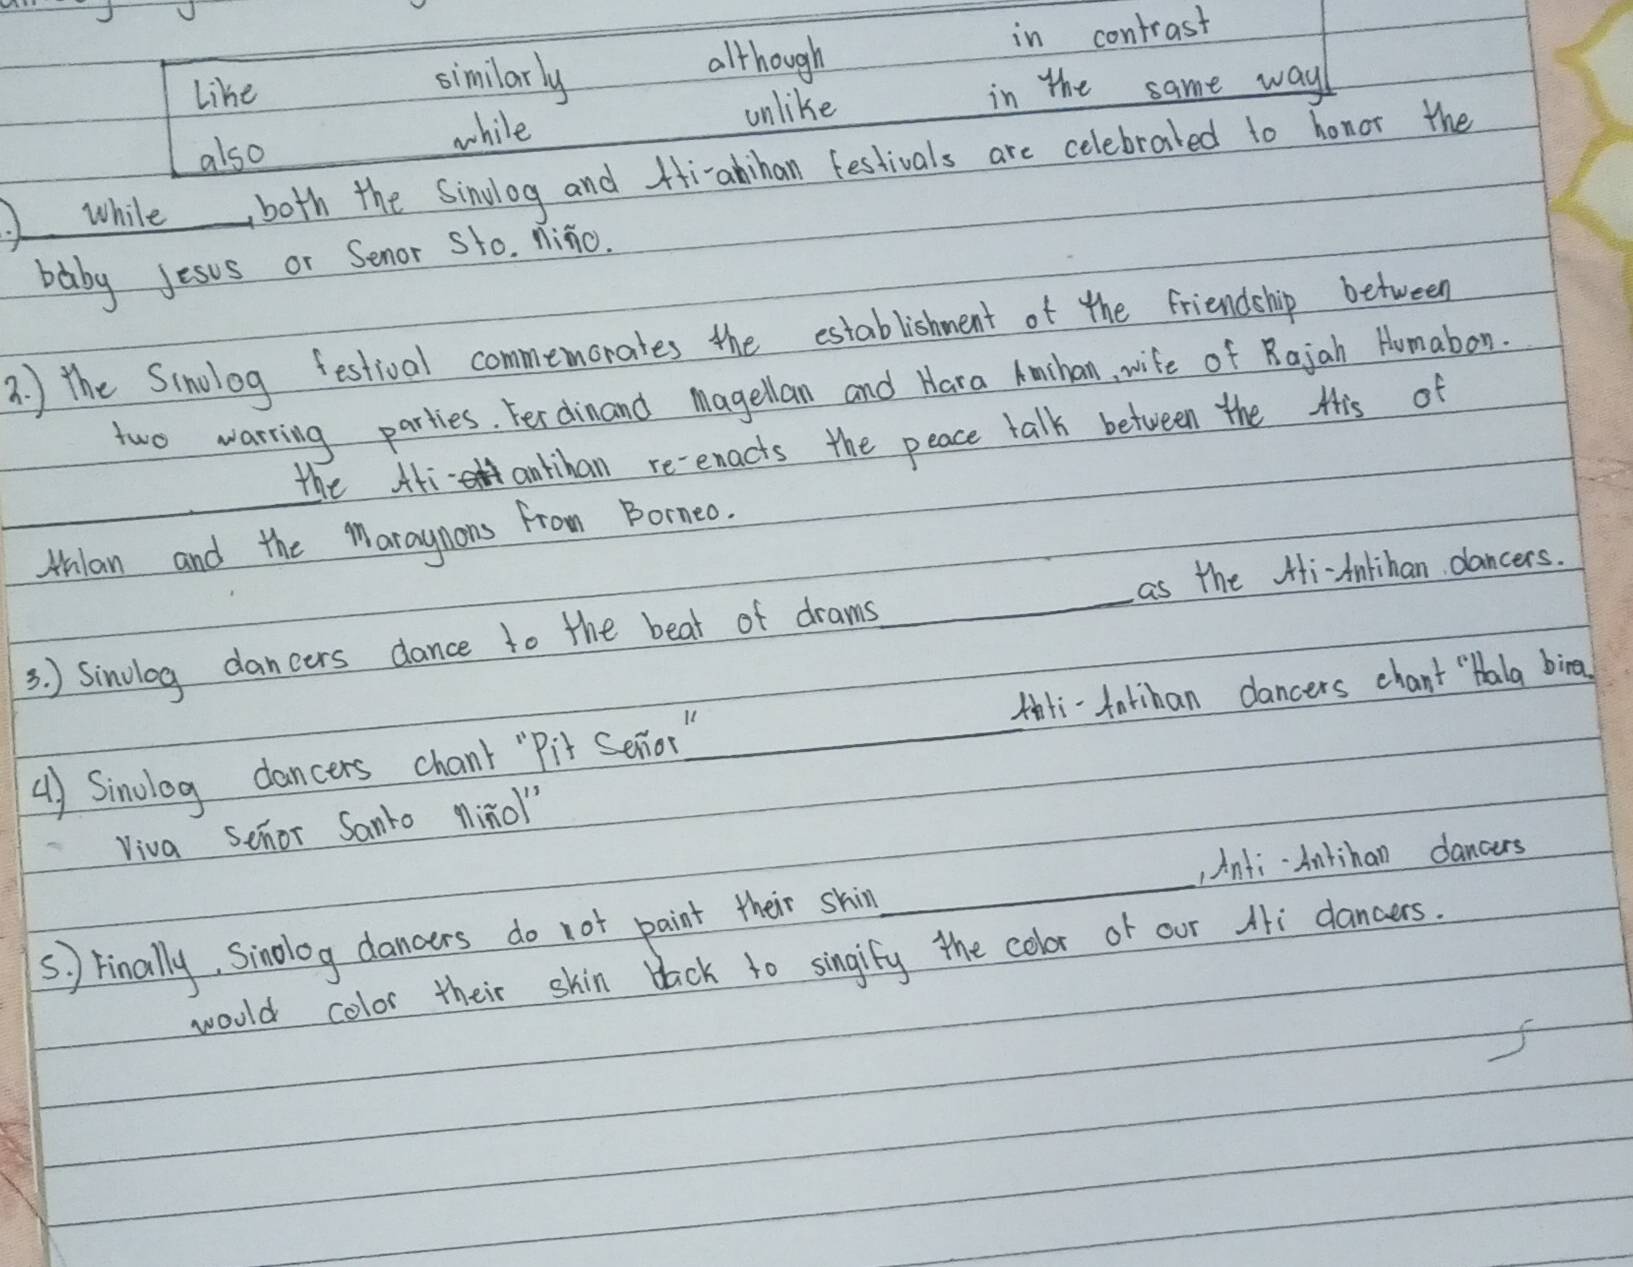 Like similarly although in contrast
also while unlike in the same way
.) while, both the Sinulog and Ati-atihan festivals are celebrated to honor the
baby Jesus or Senor Sto. Niño.
2.) The Sinulog festival commemorates the establishment of the friendship between
two warring parties. Ferdinand Magellan and Hara Amihan, wife of Rajah Humabon.
the Ati-antihan re-enacts the peace talk between the Atis of
Aklan and the Maraynons from Borneo.
3.) Sinulog dancers dance to the beat of drams as the Ati-Antihan dancers.
4.) Sinulog dancers chant "Pit Señor" Anti-Antihan dancers chant "Hala bira.
Viva Señor Santo Niño!"
5.) Finally, Sinolog dancers do not paint their skin, Anti-Antihan dancers
would color their skin black to singify the color of our Ati dancers.